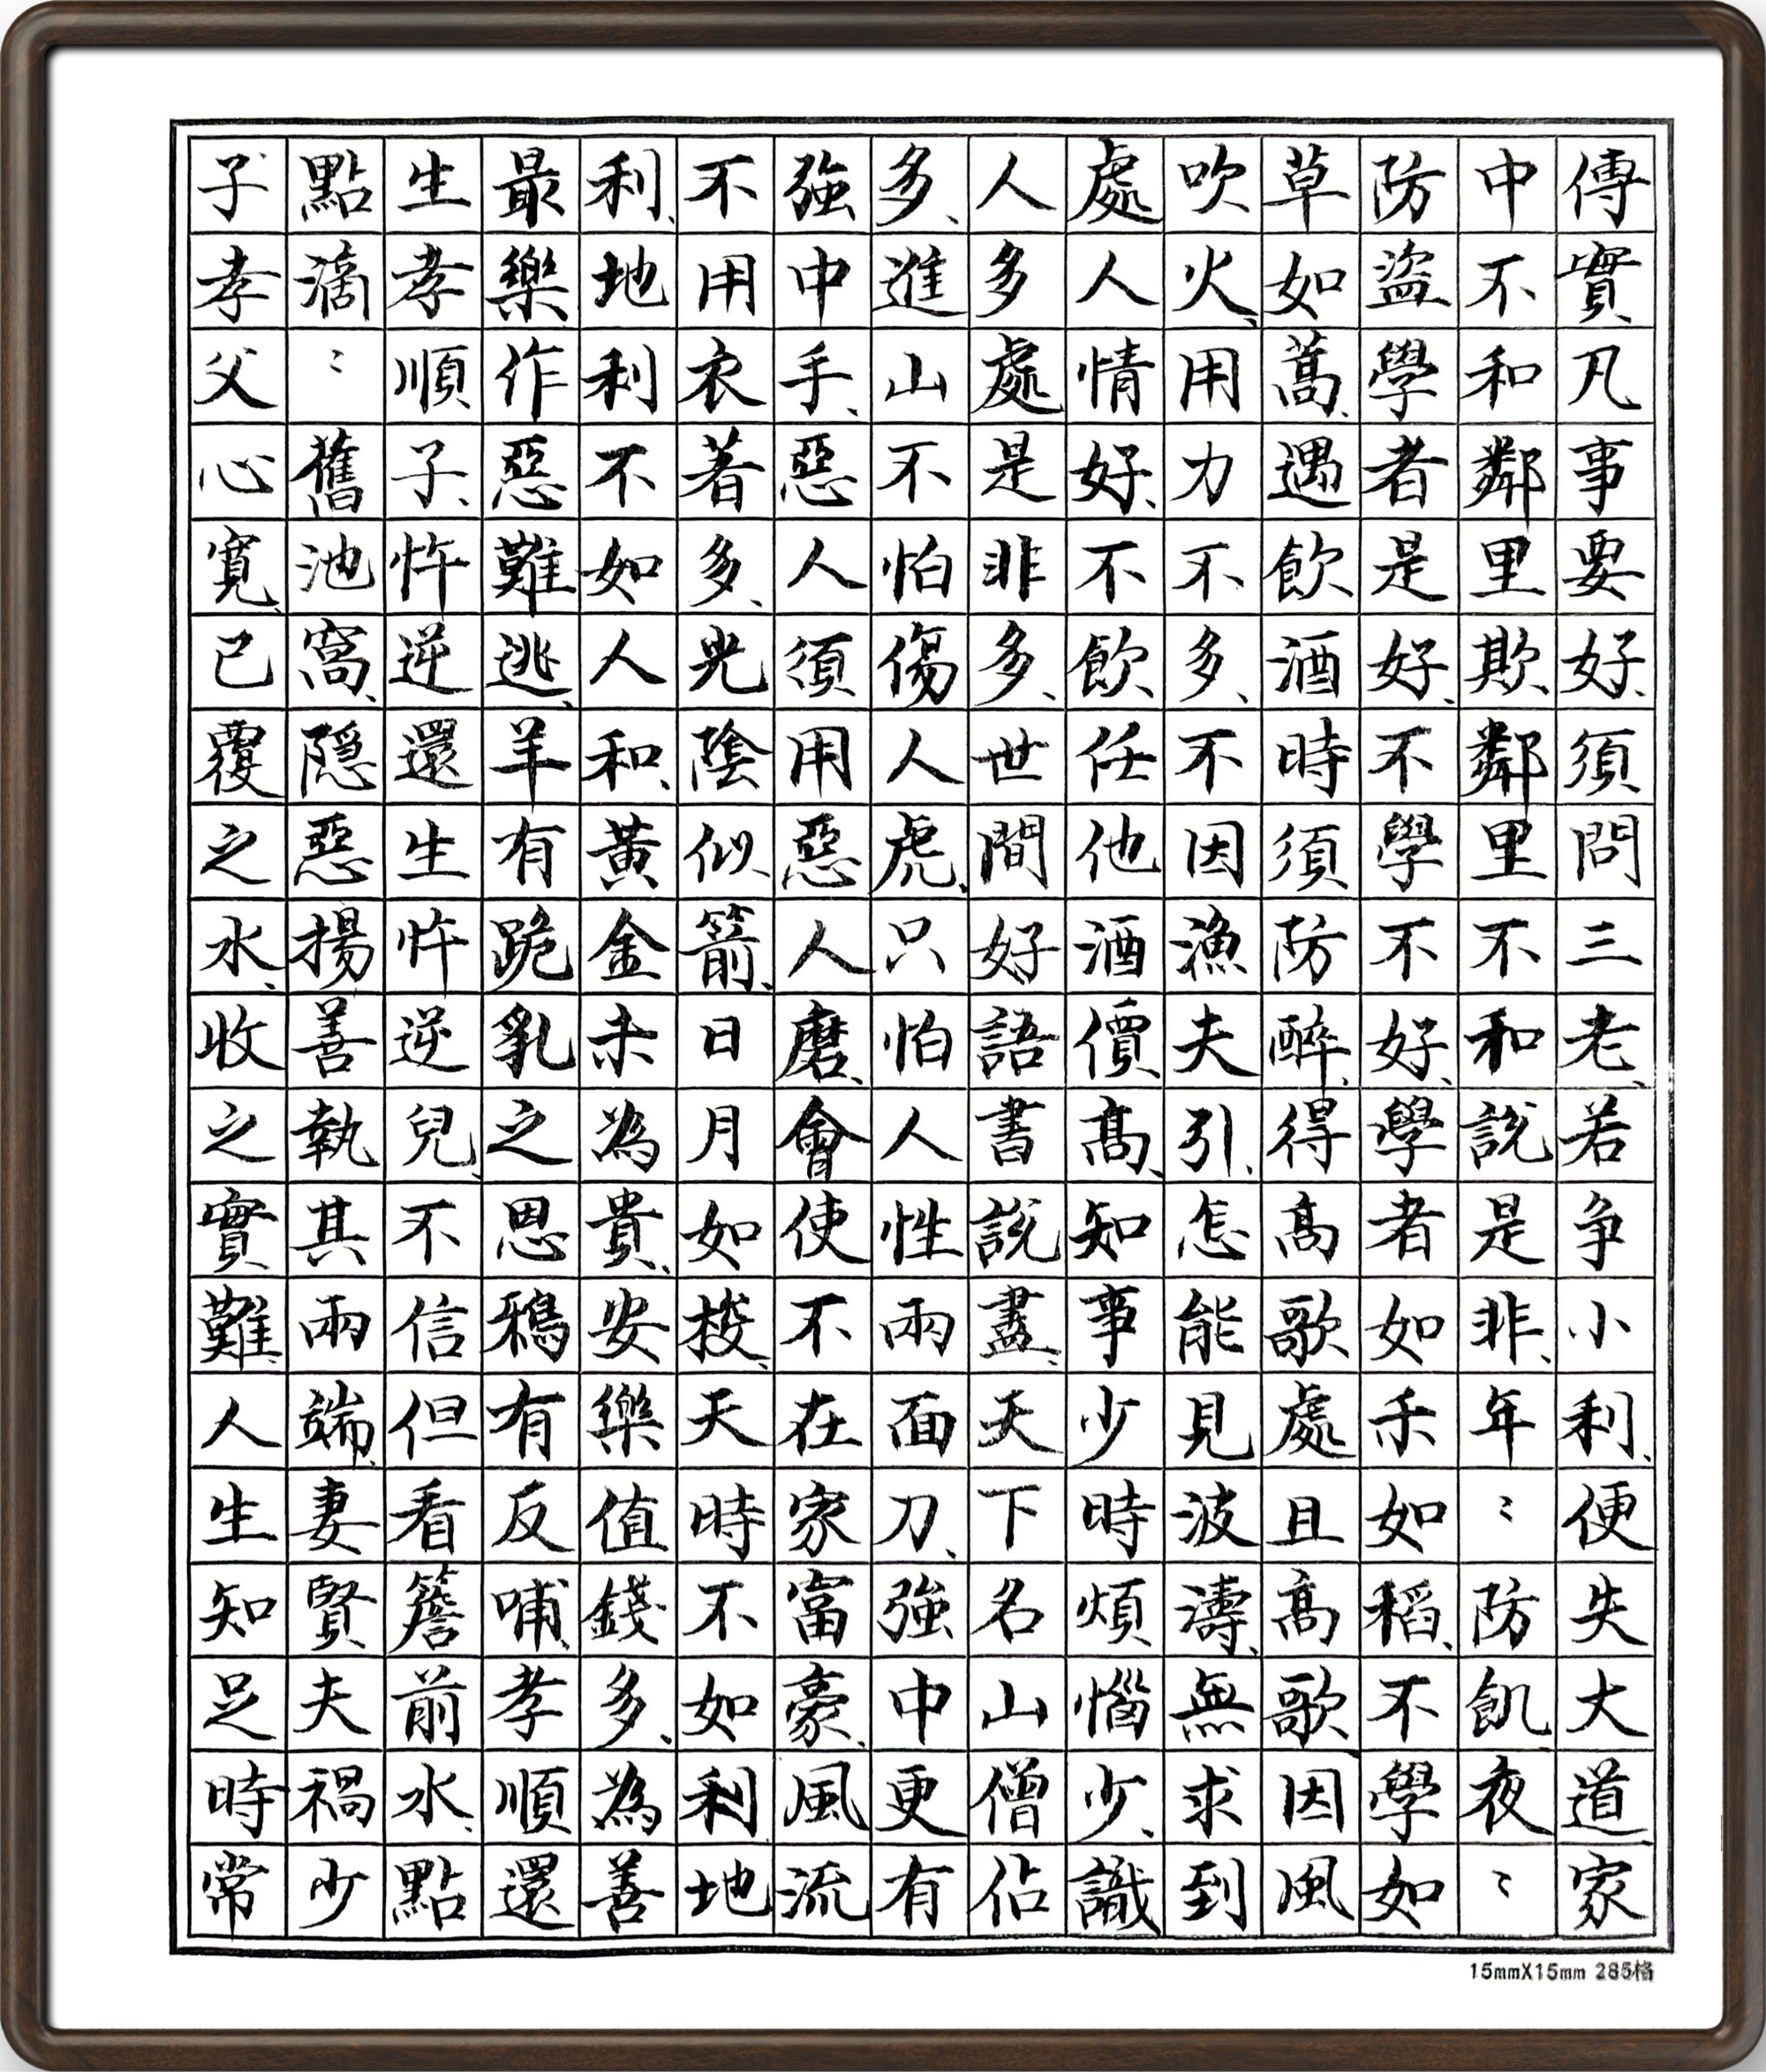 傳實、凡事要好、須問三老、若争小利、便失大道、家
中不和鄰里欺、鄰里不和說是非、年〻防飢、夜〻
防盜學者是好、不學不好、學者如禾如稻、不學如
草如蒿、遇飲酒時須防醉、得高歌處且高歌因風
吹火、用力不多、不因漁夫引、怎能見波濤、無求到
處人情好、不飲任他酒價高、知事少時煩惱少、識
人多處是非多、世間好語書說盡、天下名山僧佔
多、進山不怕傷人虎、只怕人性兩面刀、強中更有
強中手、惡人須用惡人磨、會使不在家富豪、風流
不用衣著多、光陰似箭、日月如梭、天時不如利地
利、地利不如人和、黃金未為貴、安樂值錢多、為善
最樂作惡難逃、羊有跪乳之恩鴉有反哺、孝順還
生孝順子、忤逆還生忤逆兒、不信但看簷前水、點
點滴〻舊池窩、隱惡揚善執其兩端、妻賢夫禍少
子孝父心寬、已覆之水、收之實難、人生知足時常
15mmX15mm 285格